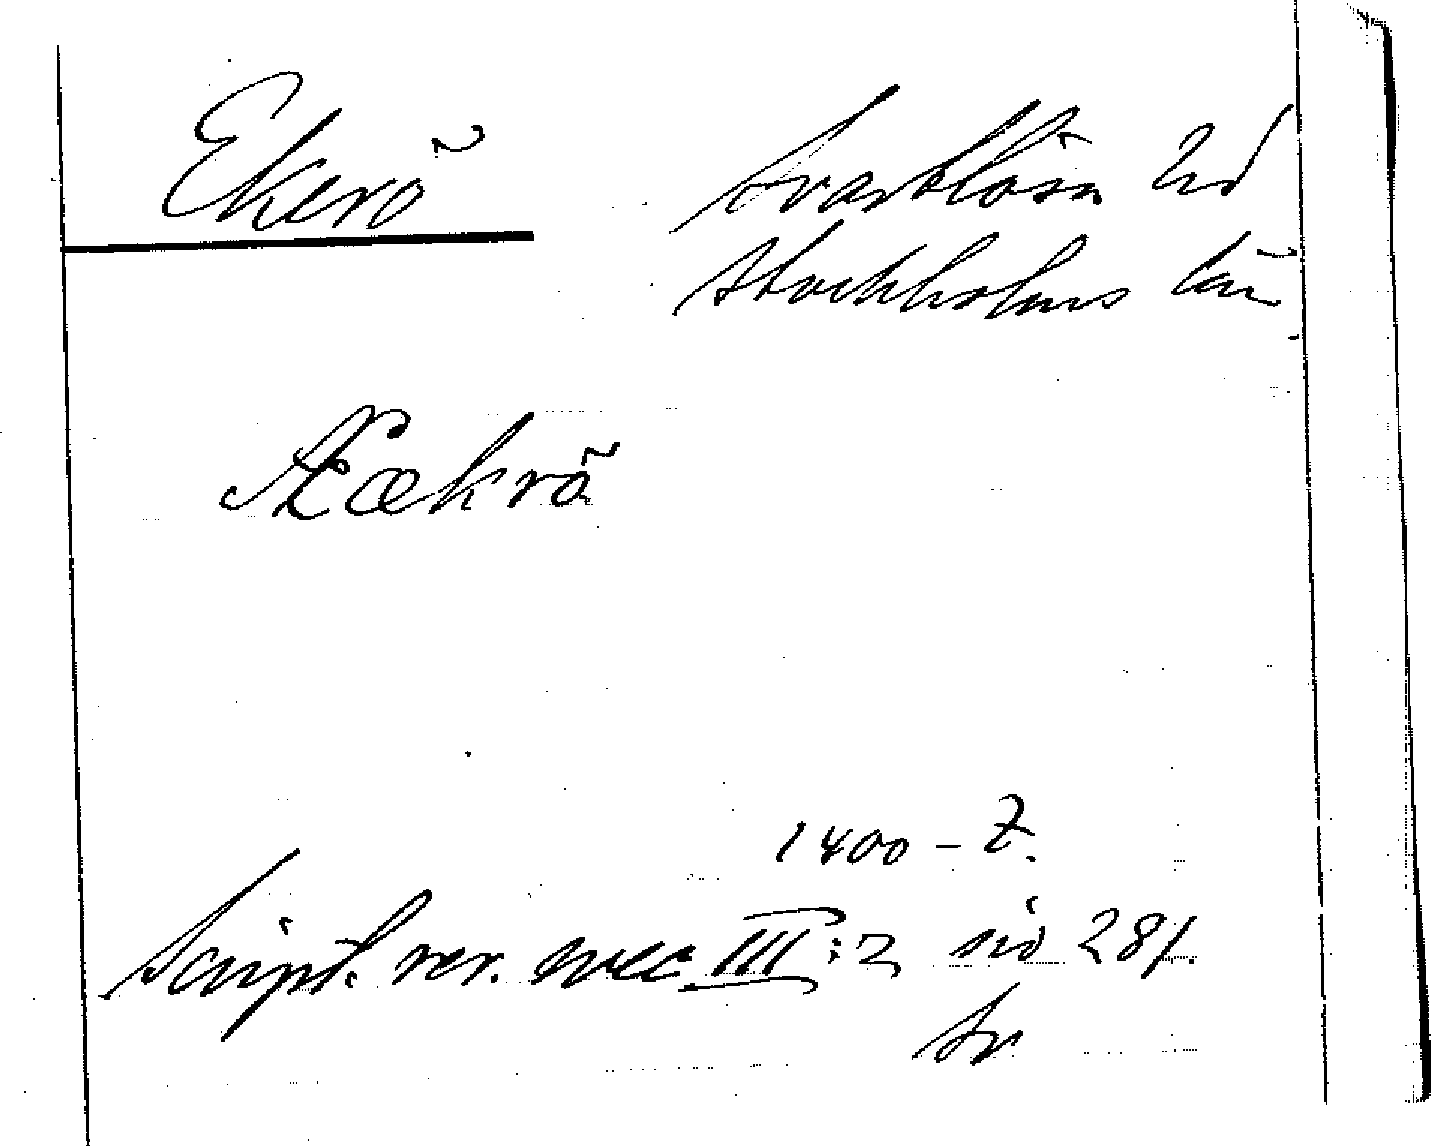 Ekerö
Svartlösa hd
Stockholms län
Æækrö
1400-t.
Script. rer. svec III:2 sid 281.
tr